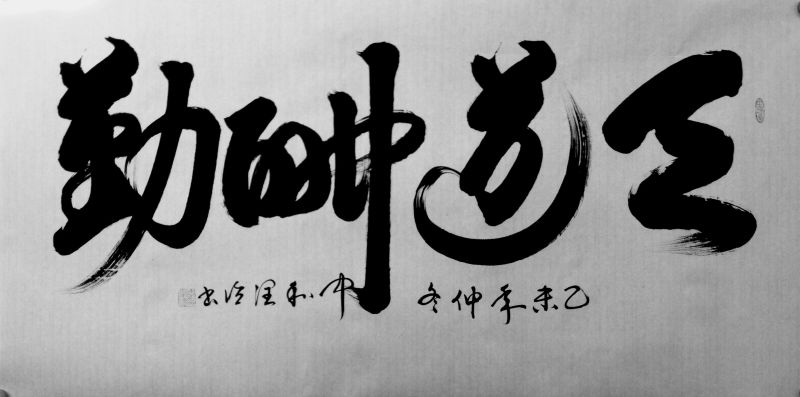 天道酬勤
乙未年仲冬
中和 书